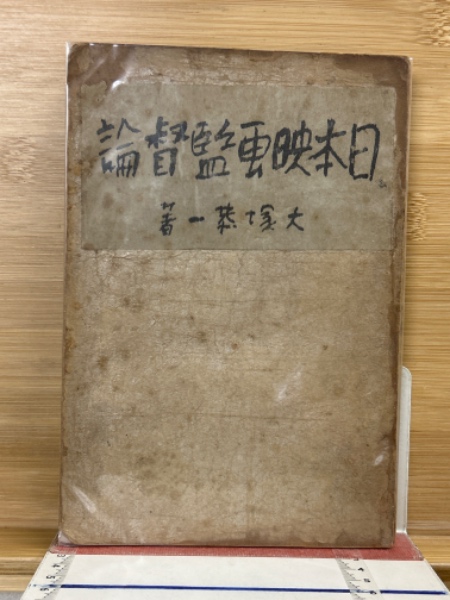 日本映画監督論
大塚恭一著